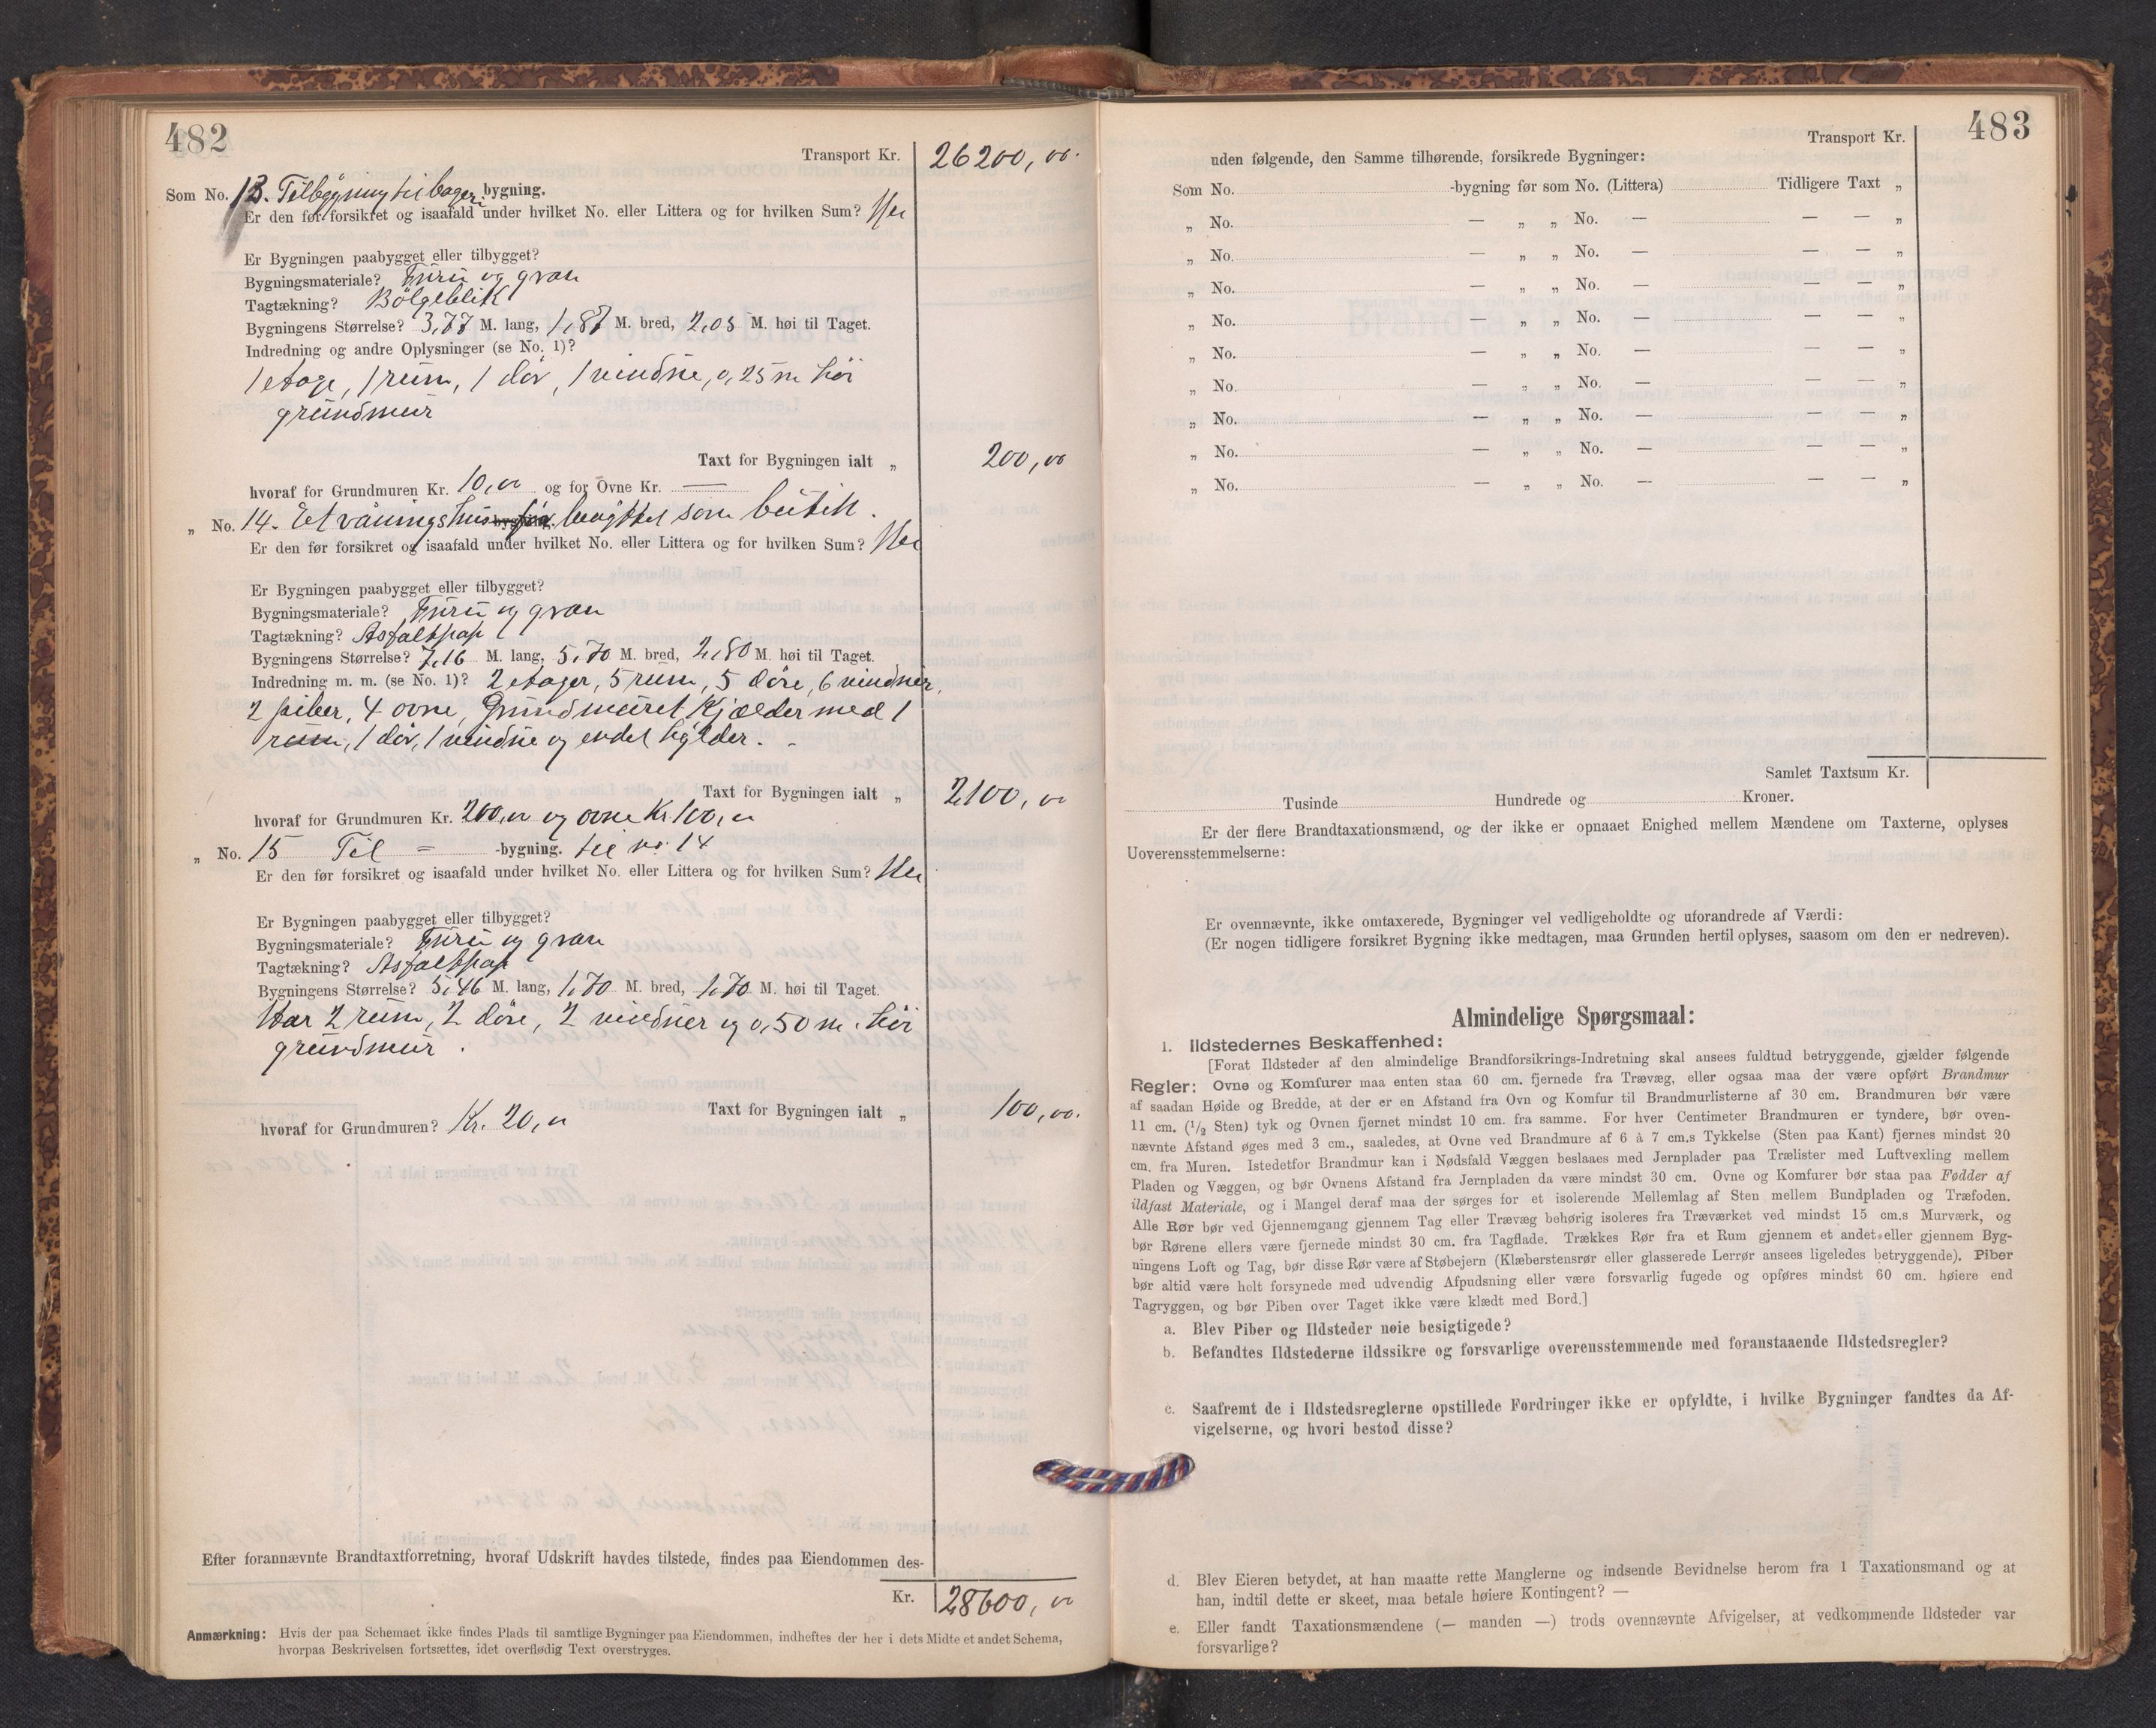 482
Transport Kr. 26200,00.
Som No. 13. Tilbygning til bageri bygning.
Er den før forsikret og isaafald under hvilket No. eller Littera og for hvilken Sum? Nei
Er Bygningen paabygget eller tilbygget?
Bygningsmateriale? Furu og gran
Tagtækning? Bölgeblik
Bygningens Størrelse? 3,77 M. lang, 1,87 M. bred, 2,05 M. høi til Taget.
Indredning og andre Oplysninger (se No. 1)?
1 etage, 1 rum, 1 dör, 1 vindue, 0,25 m höi
grundmur
Taxt for Bygningen ialt „ 200,00
hvoraf for Grundmuren Kr. 10,00 og for Ovne Kr. —
„ No. 14. Et våningshus bygning. benyttet som butik.
Er den før forsikret og isaafald under hvilket No. eller Littera og for hvilken Sum? Nei
Er Bygningen paabygget eller tilbygget?
Bygningsmateriale? Furu og gran
Tagtækning? Asfaltpap
Bygningens Størrelse? 7,16 M. lang, 5,70 M. bred, 2,80 M. høi til Taget.
Indredning m. m. (se No. 1)? 2 etager, 5 rum, 5 döre, 6 vinduer,
2 piber, 4 ovne, Grundmuret Kjælder med 1
rum, 1 dör, 1 vindue og endel hylder.
Taxt for Bygningen ialt „ 2100,00
hvoraf for Grundmuren Kr. 200,00 og ovne Kr. 100,00
„ No. 15 Til = -bygning. til no. 14
Er den før forsikret og isaafald under hvilket No. eller Littera og for hvilken Sum? Nei
Er Bygningen paabygget eller tilbygget?
Bygningsmateriale? Furu og gran
Tagtækning? Asfaltpap
Bygningens Størrelse? 5,46 M. lang, 1,70 M. bred, 1,70 M. høi til Taget.
Har 2 rum, 2 döre, 2 vinduer og 0,50 m. höi
grundmur.
Taxt for Bygningen ialt „ 100,00.
hvoraf for Grundmuren? Kr. 20,00
Efter forannævnte Brandtaxtforretning, hvoraf Udskrift havdes tilstede, findes paa Eiendommen des-
Kr. 28600,00
Anmærkning: Hvis der paa Schemaet ikke findes Plads til samtlige Bygninger paa Eiendommen, indheftes der her i dets Midte et andet Schema,
hvorpaa Beskrivelsen fortsættes, idet overflødig Text overstryges.
483
Transport Kr.
uden følgende, den Samme tilhørende, forsikrede Bygninger:
Som No. -bygning før som No. (Littera) Tidligere Taxt „
„ No. — „ „ No. — — — „
„ No. — „ „ No. — — — „
„ No. — „ „ No. — — — „
„ No. — „ „ No. — — — „
„ No. — „ „ No. — — — „
„ No. — „ „ No. — — — „
„ No. — „ „ No. — — — „
„ No. — „ „ No. — — — „
„ No. — „ „ No. — — — „
Samlet Taxtsum Kr.
Tusinde Hundrede og Kroner.
Er der flere Brandtaxationsmænd, og der ikke er opnaaet Enighed mellem Mændene om Taxterne, oplyses
Uoverensstemmelserne:
Er ovennævnte, ikke omtaxerede, Bygninger vel vedligeholdte og uforandrede af Værdi:
(Er nogen tidligere forsikret Bygning ikke medtagen, maa Grunden hertil oplyses, saasom om den er nedreven).
Almindelige Spørgsmaal:
1. Ildstedernes Beskaffenhed:
[Forat Ildsteder af den almindelige Brandforsikrings-Indretning skal ansees fuldtud betryggende, gjælder følgende
Regler: Ovne og Komfurer maa enten staa 60 cm. fjernede fra Trævæg, eller ogsaa maa der være opført Brandmur
af saadan Høide og Bredde, at der er en Afstand fra Ovn og Komfur til Brandmurlisterne af 30 cm. Brandmuren bør være
11 cm. (1/2 Sten) tyk og Ovnen fjernet mindst 10 cm. fra samme. For hver Centimeter Brandmuren er tyndere, bør oven-
nævnte Afstand øges med 3 cm., saaledes, at Ovne ved Brandmure af 6 à 7 cm.s Tykkelse (Sten paa Kant) fjernes mindst 20
cm. fra Muren. Istedetfor Brandmur kan i Nødsfald Væggen beslaaes med Jernplader paa Trælister med Luftvexling mellem
Pladen og Væggen, og bør Ovnens Afstand fra Jernpladen da være mindst 30 cm. Ovne og Komfurer bør staa paa Fødder af
ildfast Materiale, og i Mangel deraf maa der sørges for et isolerende Mellemlag af Sten mellem Bundpladen og Træfoden.
Alle Rør bør ved Gjennemgang gjennem Tag eller Trævæg behørig isoleres fra Træværket ved mindst 15 cm.s Murværk, og
bør Rørene ellers være fjernede mindst 30 cm. fra Tagflade. Trækkes Rør fra et Rum gjennem et andet eller gjennem Byg-
ningens Loft og Tag, bør disse Rør være af Støbejern (Klæberstensrør eller glasserede Lerrør ansees ligeledes betryggende). Piber
bør altid være helt forsynede med udvendig Afpudsning eller være forsvarlig fugede og opføres mindst 60 cm. høiere end
Tagryggen, og bør Piben over Taget ikke være klædt med Bord.]
a. Blev Piber og Ildsteder nøie besigtigede?
b. Befandtes Ildstederne ildssikre og forsvarlige overensstemmende med foranstaaende Ildstedsregler?
c. Saafremt de i Ildstedsreglerne opstillede Fordringer ikke er opfyldte, i hvilke Bygninger fandtes da Af-
vigelserne, og hvori bestod disse?
d. Blev Eieren betydet, at han maatte rette Manglerne og indsende Bevidnelse herom fra 1 Taxationsmand og at
han, indtil dette er skeet, maa betale høiere Kontingent? —
e. Eller fandt Taxationsmændene (— manden —) trods ovennævnte Afvigelser, at vedkommende Ildsteder var
forsvarlige?